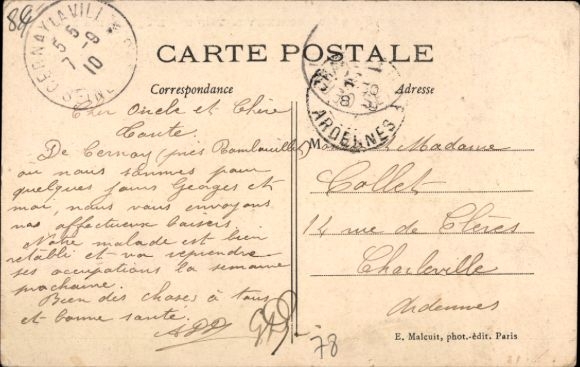 84
CERNAY LA VILLE
7 5
5 - 9
10
S-ET-O
CARTE POSTALE
Correspondance
Adresse
ARDENNES
Cher Oncle et Chère
Tante.
De Cernay (près Rambouillet)
où nous sommes pour
quelques jours Georges et
moi, nous vous envoyons
nos affectueux baisers
Notre malade est bien
rétabli et va reprendre
ses occupations la semaine
prochaine.
Bien des choses à tous
et bonne santé.
M Madame
Collet
14 rue de Clèves
Charleville
Ardennes
78
E. Malcuit, phot.-édit. Paris